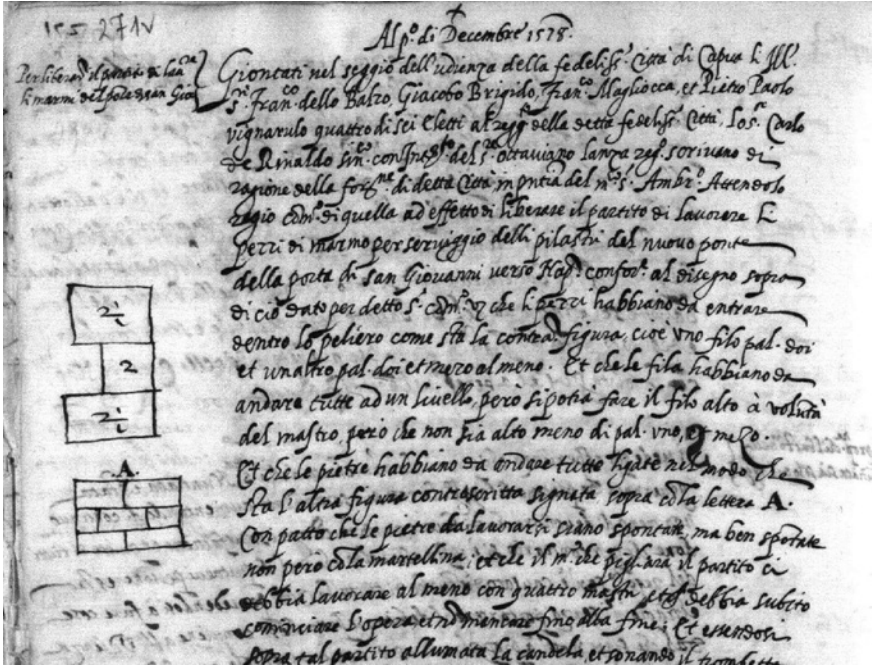 155 271v
Al p.º di Decembre 1578.
Per liberare il partito di lau.re
li marmi del ponte di san Gioa
Giontati nel seggio dell'udienza della fedeliss.ª Città di Capua li Ill.
s.ri Fran.co dello Balzo, Giacobo Brigido, Fran.co Magliocca, et Pietro Paolo
vignarulo quattro di sei Eletti al regg.to della detta fedeliss.ª Città, Lo s.r Carlo
de Rinaldo sin.co con del s.r ottaviano lanza reg.º scrivano di
ragione della di detta Città in pntia del m.co s.r Ambr.º Attendolo
regio di quella ad effetto di liberare il partito di lavorare li
pezzi di marmo per serviggio delli pilastri del nuovo ponte
della porta di san Giovanni verso Nap. confor.e al disegno sopra
di ciò dato per detto s.r che li pezzi habbiano da entrare
dentro lo peliero come sta la contra figura, cioè uno filo pal. doi
et un altro pal. doi et mezo al meno. Et che le fila habbiano da
andare tutte ad un livello, però si potrà fare il filo alto à voluntà
del mastro, però che non sia alto meno di pal. uno, et mezo.
Et che le pietre habbiano da andare tutte ligate nel modo che
sta l'altra figura controscritta signata sopra cola lettera A.
Con patto che le pietre da lavorarsi siano spontate, ma ben spontate
non però cola martellina; et che il m.ro che pigliarà il partito ci
debbia lavorare al meno con quattro mastri, et debbia subito
cominciare l'opera et nò mancare fino alla fine; Et essendosi
sopra tal partito allumata la candela, et sonando il trombetta
2 1/2
2
2 1/2
.A.